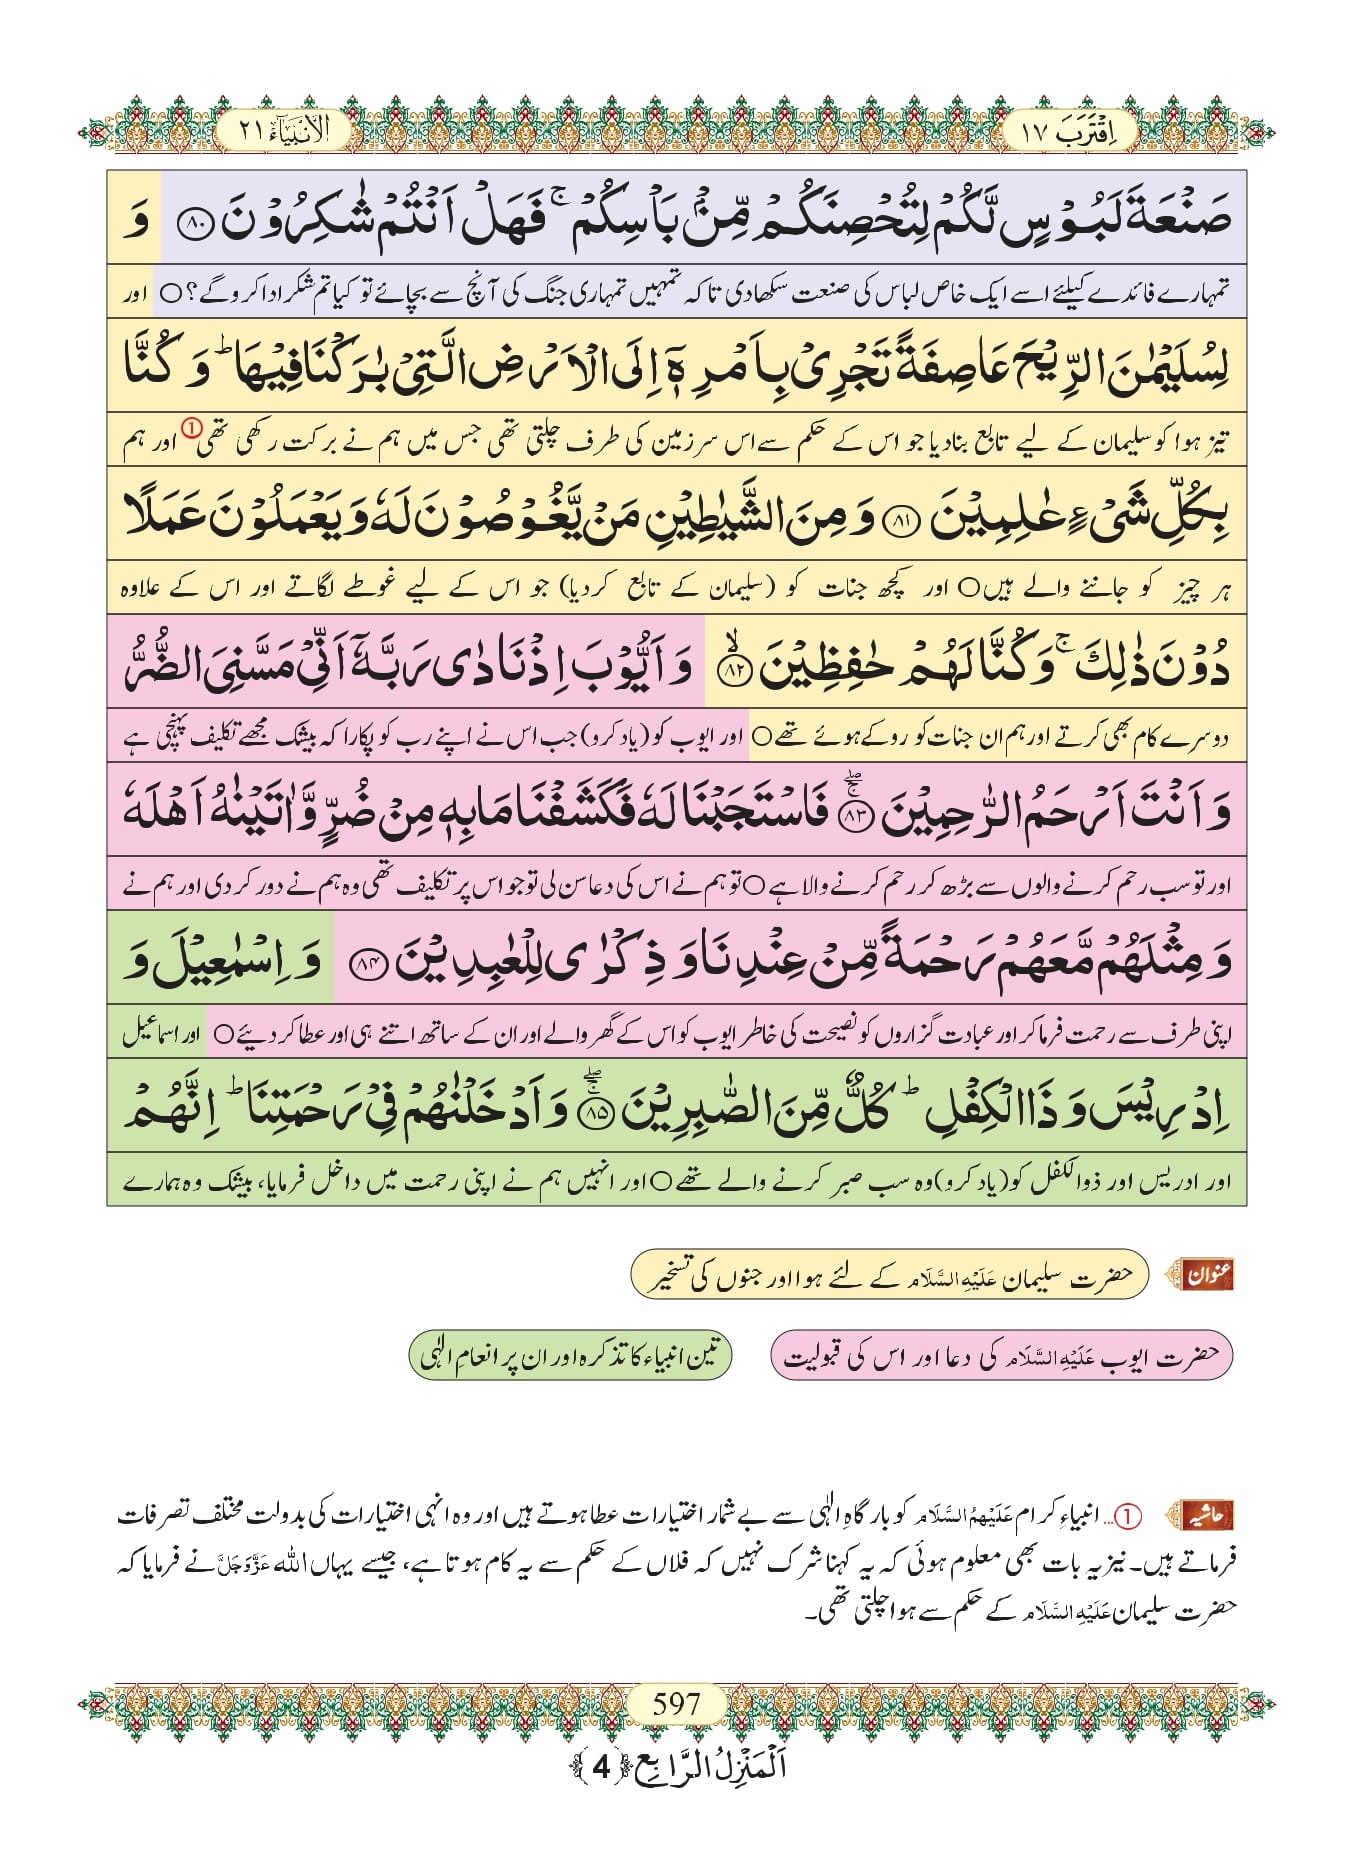 اِقْتَرَبَ ١٧
الْاَنْبِیَآء ٢١
صَنْعَةَ لَبُوْسٍ لَّكُمْ لِتُحْصِنَكُمْ مِّنْۢ بَاْسِكُمْ ۚ فَهَلْ اَنْتُمْ شٰكِرُوْنَ ﴿٨٠﴾ وَ
تمہارے فائدے کیلئے اسے ایک خاص لباس کی صنعت سکھادی تاکہ تمہیں تمہاری جنگ کی آنچ سے بچائے تو کیا تم شکر ادا کروگے؟○ اور
لِسُلَیْمٰنَ الرِّیْحَ عَاصِفَةً تَجْرِیْ بِاَمْرِهٖۤ اِلَى الْاَرْضِ الَّتِیْ بٰرَكْنَا فِیْهَا ؕ وَ كُنَّا
تیز ہوا کو سلیمان کے لیے تابع بنادیا جو اس کے حکم سے اس سرزمین کی طرف چلتی تھی جس میں ہم نے برکت رکھی تھی① اور ہم
بِكُلِّ شَیْءٍ عٰلِمِیْنَ ﴿٨١﴾ وَ مِنَ الشَّیٰطِیْنِ مَنْ یَّغُوْصُوْنَ لَهٗ وَ یَعْمَلُوْنَ عَمَلًا
ہر چیز کو جاننے والے ہیں○ اور کچھ جنات کو (سلیمان کے تابع کردیا) جو اس کے لیے غوطے لگاتے اور اس کے علاوہ
دُوْنَ ذٰلِكَ ۚ وَ كُنَّا لَهُمْ حٰفِظِیْنَ ﴿٨٢﴾ۙ وَ اَیُّوْبَ اِذْ نَادٰى رَبَّهٗۤ اَنِّیْ مَسَّنِیَ الضُّرُّ
دوسرے کام بھی کرتے اور ہم ان جنات کو روکے ہوئے تھے○ اور ایوب کو (یاد کرو) جب اس نے اپنے رب کو پکارا کہ بیشک مجھے تکلیف پہنچی ہے
وَ اَنْتَ اَرْحَمُ الرّٰحِمِیْنَ ﴿٨٣﴾ۚۖ فَاسْتَجَبْنَا لَهٗ فَكَشَفْنَا مَا بِهٖ مِنْ ضُرٍّ وَّ اٰتَیْنٰهُ اَهْلَهٗ
اور تو سب رحم کرنے والوں سے بڑھ کر رحم کرنے والا ہے○ تو ہم نے اس کی دعا سن لی تو جو اس پر تکلیف تھی وہ ہم نے دور کردی اور ہم نے
وَ مِثْلَهُمْ مَّعَهُمْ رَحْمَةً مِّنْ عِنْدِنَا وَ ذِكْرٰى لِلْعٰبِدِیْنَ ﴿٨٤﴾ وَ اِسْمٰعِیْلَ وَ
اپنی طرف سے رحمت فرما کر اور عبادت گزاروں کو نصیحت کی خاطر ایوب کو اس کے گھر والے اور ان کے ساتھ اتنے ہی اور عطا کردیئے○ اور اسماعیل
اِدْرِیْسَ وَ ذَا الْكِفْلِ ؕ كُلٌّ مِّنَ الصّٰبِرِیْنَ ﴿٨٥﴾ۚۖ وَ اَدْخَلْنٰهُمْ فِیْ رَحْمَتِنَا ؕ اِنَّهُمْ
اور ادریس اور ذوالکفل کو (یاد کرو) وہ سب صبر کرنے والے تھے○ اور انہیں ہم نے اپنی رحمت میں داخل فرمایا، بیشک وہ ہمارے
عنوان حضرت سلیمان عَلَیْہِ السَّلَام کے لئے ہوا اور جنوں کی تسخیر
حضرت ایوب عَلَیْہِ السَّلَام کی دعا اور اس کی قبولیت
تین انبیاء کا تذکرہ اور ان پر انعامِ الٰہی
حاشیہ ①... انبیاءِ کرام عَلَیْہِمُ السَّلَام کو بارگاہِ الٰہی سے بے شمار اختیارات عطا ہوتے ہیں اور وہ انہی اختیارات کی بدولت مختلف تصرفات
فرماتے ہیں۔ نیز یہ بات بھی معلوم ہوئی کہ یہ کہنا شرک نہیں کہ فلاں کے حکم سے یہ کام ہوتا ہے، جیسے یہاں اللہ عَزَّوَجَلَّ نے فرمایا کہ
حضرت سلیمان عَلَیْہِ السَّلَام کے حکم سے ہوا چلتی تھی۔
597
اَلْمَنْزِلُ الرَّابِع ﴿4﴾